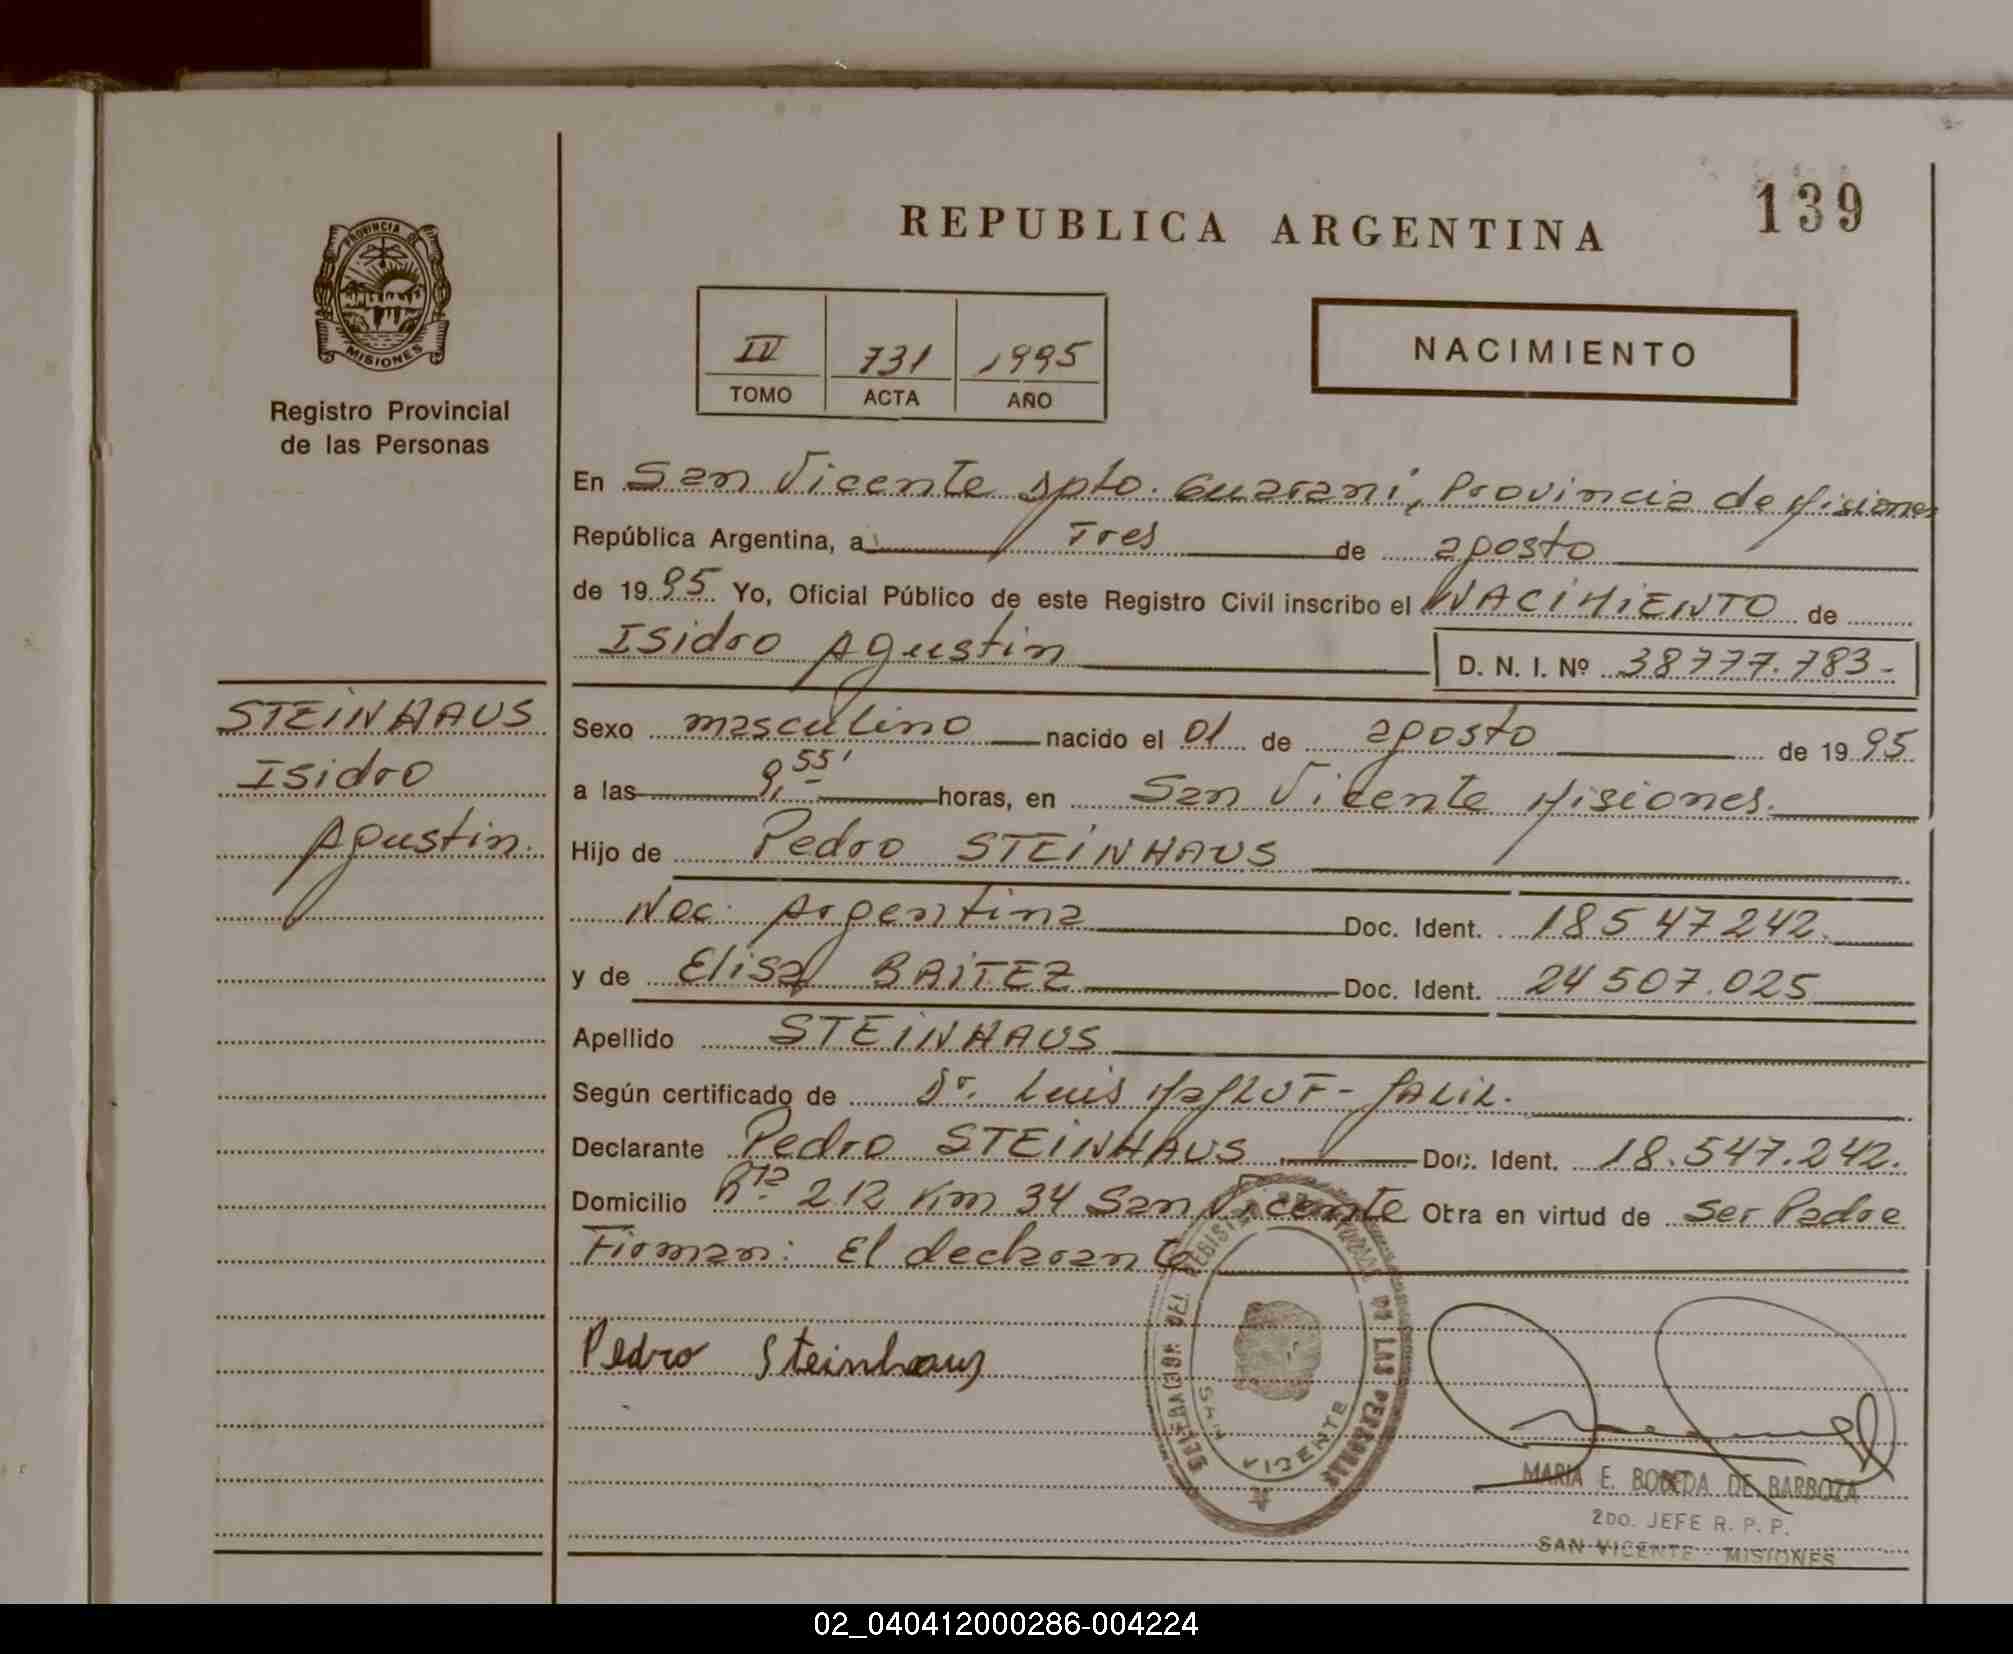 139
REPUBLICA ARGENTINA
PROVINCIA DE
MISIONES
Registro Provincial
de las Personas
IV 731 1995
TOMO ACTA AÑO
NACIMIENTO
En San Vicente Dpto. Guaraní, Provincia de Misiones
República Argentina, a Tres de agosto
de 1995 Yo, Oficial Público de este Registro Civil inscribo el NACIMIENTO de
Isidro Agustin D. N. I. Nº 38777.783-
STEINHAUS
Isidro
Agustin.
Sexo masculino nacido el 01 de agosto de 1995
a las 9,55' horas, en San Vicente Misiones.
Hijo de Pedro STEINHAUS
Nac. Argentina Doc. Ident. 18547242.
y de Elisa BAITEZ Doc. Ident. 24507.025
Apellido STEINHAUS
Según certificado de Dr. Luis
Declarante Pedro STEINHAUS Doc. Ident. 18.547.242.
Domicilio Rta. 212 Km 34 San Vicente Obra en virtud de ser Padre
Firman: El declarante
Pedro Steinhaus
DEL REGISTRO PROVINCIAL DE LAS PERSONAS
SAN VICENTE
MARIA E. BOBEDA DE BARBOZA
2DO. JEFE R. P. P.
SAN VICENTE - MISIONES
02_040412000286-004224